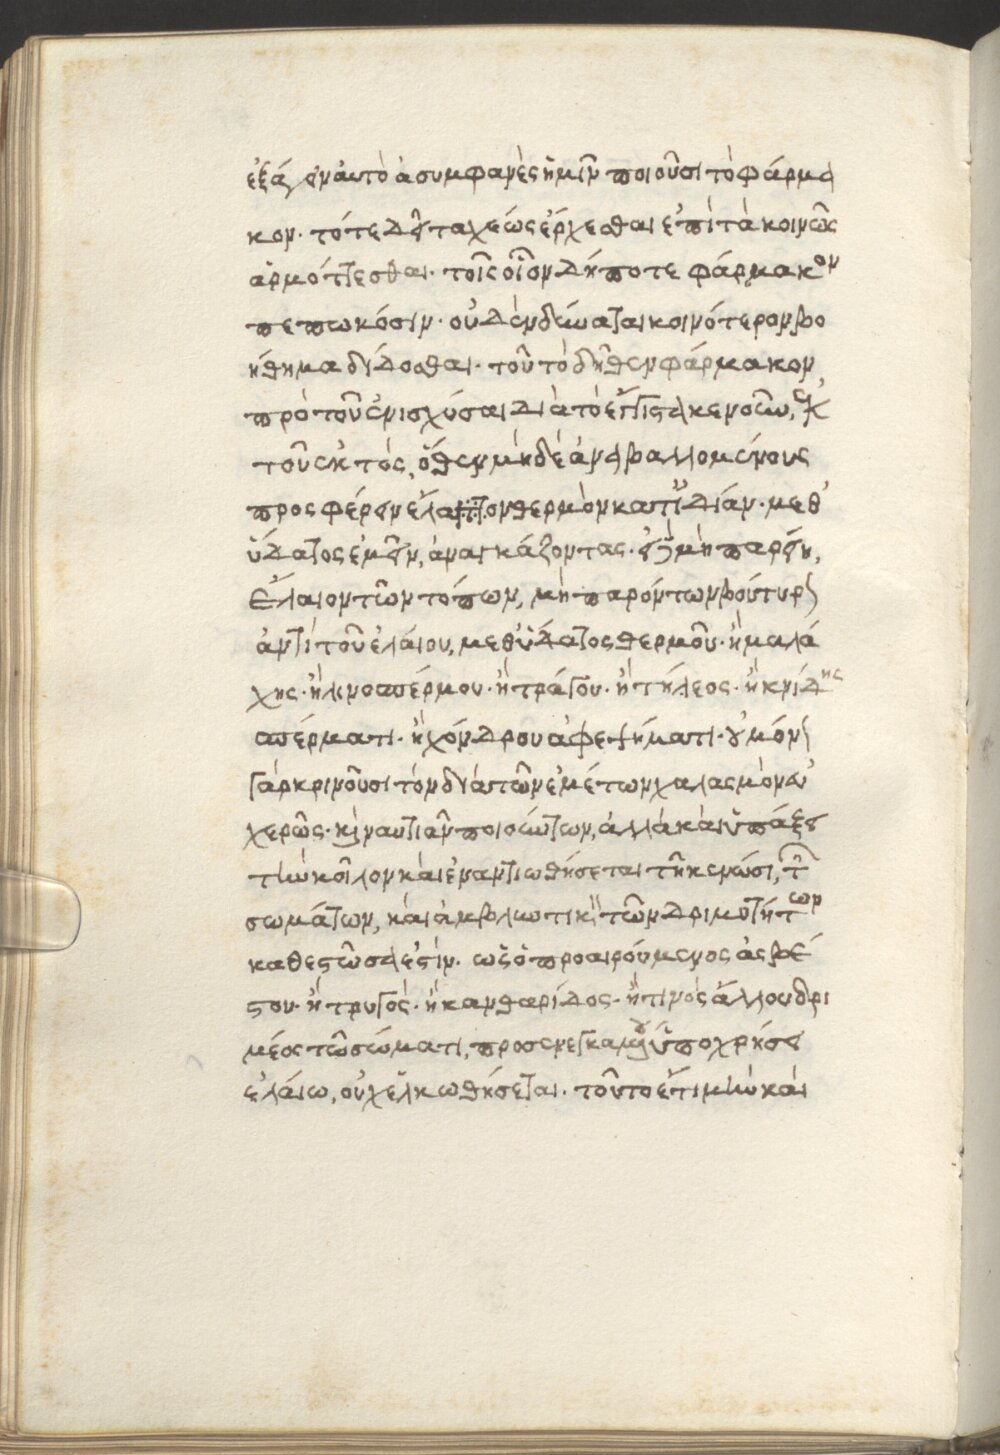 ἐξάγειν αὐτὸ ἀσυμφανὲς ἡμῖν ποιοῦσι τὸ φάρμα
κον· τότε δεῖ ταχέως ἔρχεσθαι ἐπὶ τὰ κοινῶς
ἁρμόττεσθαι· τοῖς οἷον δήποτε φάρμακον
πεπωκόσιν· οὐδὲν δὲ κοινότερον βο
ήθημα δίδοσθαι· τοῦ τὸ δηχθὲν φάρμακον
πρὸ τοῦ ἐνισχύσαι διὰ τὸ ἔγγιστα κενοῦν, ἐκ
τοῦ ἐκτός, ὅθεν μηδὲ ἀναβαλλομένους
προσφέρειν ἔλαιον θερμὸν κατ' ἰδίαν· μεθ'
ὕδατος ἐμεῖν, ἀναγκάζοντας· εἰ δὲ μὴ παρείη,
ἔλαιον τῶν τόπων, μὴ παρόντων βούτυρον
ἀντὶ τοῦ ἐλαίου, μεθ' ὕδατος θερμοῦ· ἢ μαλά
χης· ἢ λινοσπέρμου· ἢ τράγου· ἢ τήλεος· ἢ κνίδης
σπέρματι· ἢ χόνδρου ἀφεψήματι· οὐ μόνον
γὰρ κρινοῦσι τὸν διὰ τῶν ἐμέτων χαλασμὸν εὐ
χερῶς· καὶ ναυτιᾶν ποιούντων, ἀλλὰ καὶ ὑπάξει
τὴν κοῖλον καὶ ἐναντιωθήσεται τῇ κενώσει, τῶν
σωμάτων, καὶ ἀμβλυωτικὴ τῶν δριμυτήτων
καθεστῶσά ἐστιν· ὡς ὁ προαιρούμενος ἀσβέ
στου· ἢ τρυγός· ἢ κανθαρίδος· ἢ τινὸς ἄλλου δρι
μέος τῷ σώματι, προσενεγκάμενος ὑποχρήσει
ἐλαίω, οὐχ ἑλκωθήσεται· τοῦτο ἔτι μὴν καὶ